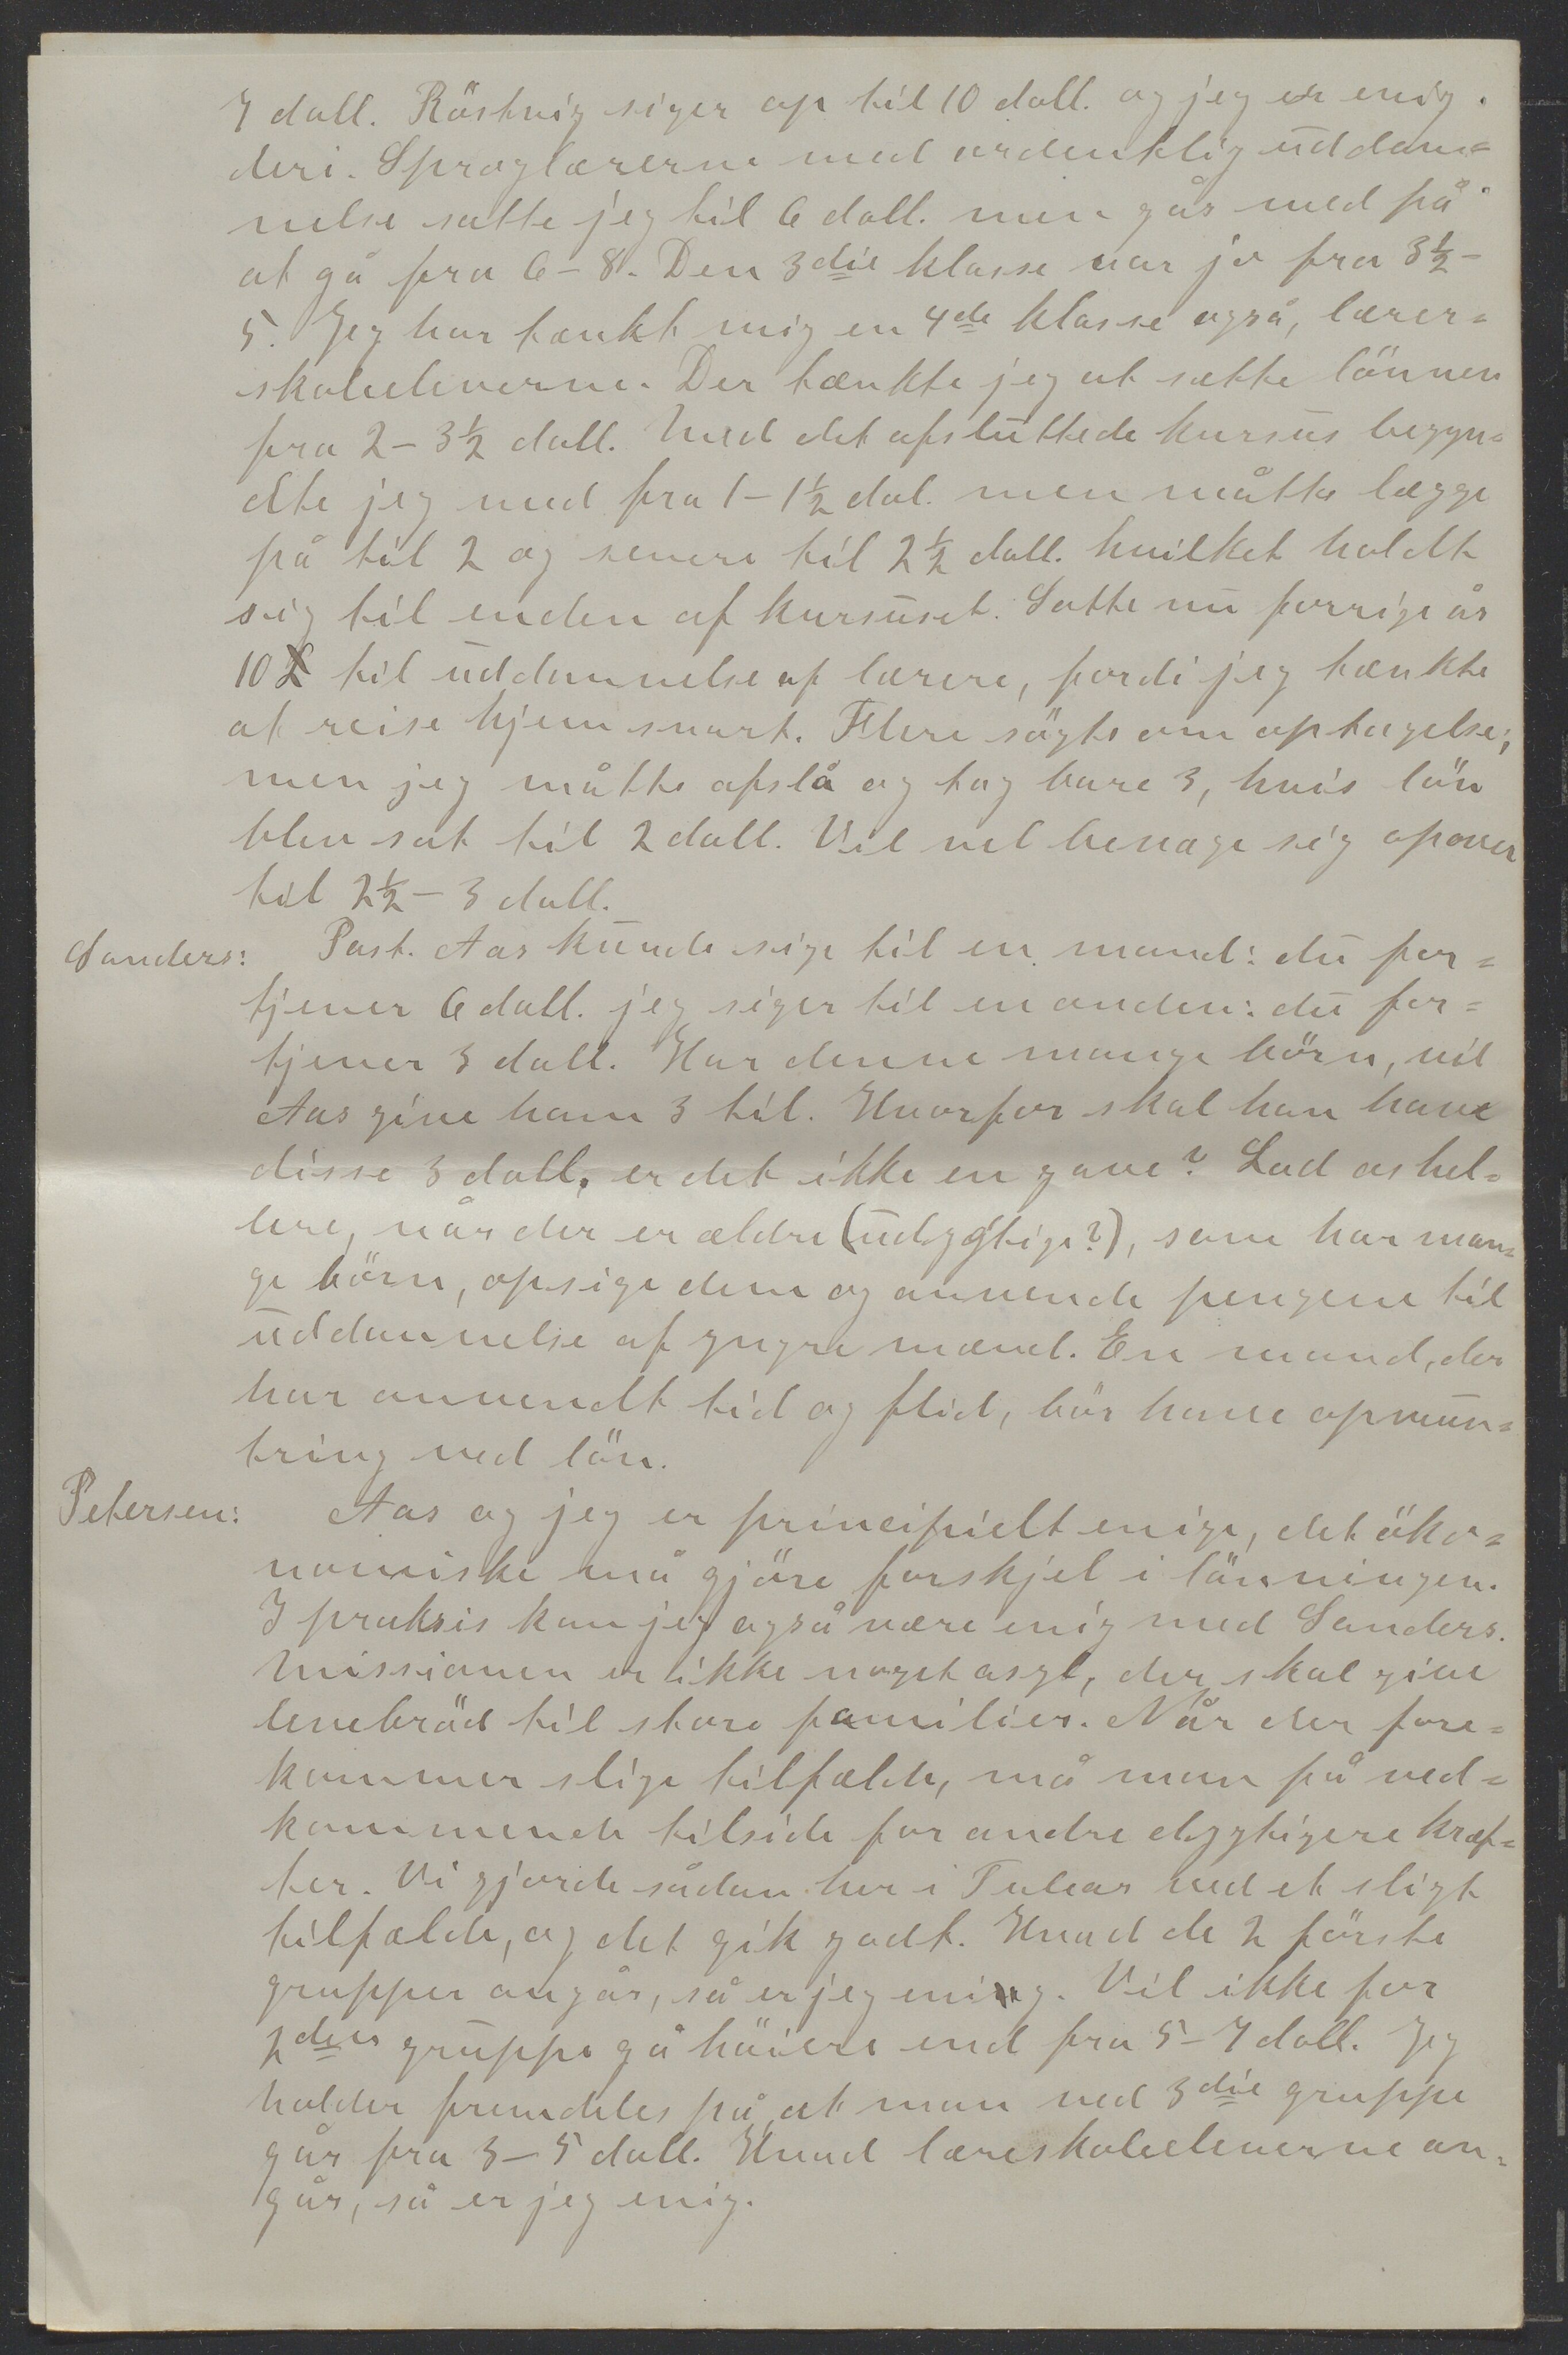 7 doll. Röstvig siger op til 10 doll. og jeg er enig
deri. Sproglærerne med ordentlig uddan=
nelse satte jeg til 6 doll. men går med på
at gå fra 6-8. Den 3die klasse var jo fra 3½-
5. Jeg har tænkt mig en 4de klasse også, lærer=
skoleeleverne. Der tænkte jeg at sætte lönnen
fra 2-3½ doll. Med det afsluttede kursus begyn=
dte jeg med fra 1-1½ dol. men måtte lægge
på til 2 og senere til 2½ doll. hvilket holdt
sig til enden af kursuset. Satte nu forrige år
10 £ til uddannelse af lærere, fordi jeg tænkte
at reise hjem snart. Flere sögte om optagelse;
men jeg måtte afslå og tog bare 3, hvis lön
blev sat til 2 doll. Vil vel bevæge sig opover
til 2½-3 doll.
Sanders: Past. Aas kunde sige til en mand: du for=
tjener 6 doll. jeg siger til en anden: du for=
tjener 3 doll. Har denne mange börn, vil
Aas give ham 3 til. Hvorfor skal han have
disse 3 doll, er det ikke en gave? Lad os hel=
lere, når der er ældre (udygtige?), som har man=
ge börn, opsige dem og anvende pengene til
uddannelse af yngre mænd. En mand, der
har anvendt tid og flid, bör have opmun=
tring ved lön.
Petersen: Aas og jeg er principielt enige, det öko=
nomiske må gjöre forskjel i lönningen.
I praksis kan jeg også være enig med Sanders.
Missionen er ikke noget asyl, der skal give
levebröd til store familier. Når der fore=
kommer slige tilfælde, må man få ved=
kommende tilside for andre dygtigere kræf=
ter. Vi gjorde sådan her i Tulear ved et sligt
tilfælde, og det gik godt. Hvad de 2 förste
grupper angår, så er jeg enig. Vil ikke for
2den gruppe gå höiere end fra 5-7 doll. Jeg
holder fremdeles på, at man ved 3die gruppe
går fra 3-5 doll. Hvad læreskoleeleverne an=
går, så er jeg enig.